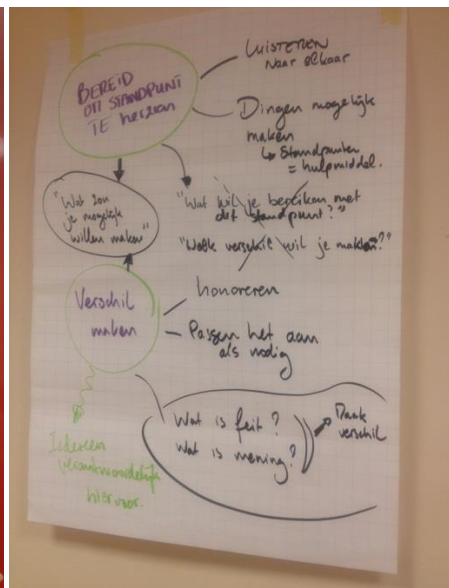 BEREID
OM STANDPUNT
TE herzien
LUISTEREN
Naar elkaar
Dingen mogelijk
maken
↳ Standpunten
= hulpmiddel.
"Wat zou
je mogelijk
willen maken"
"Wat wil je bereiken met
dit standpunt?"
"Welk verschil wil je maken?"
Verschil
maken
honoreren
Passen het aan
als nodig
Wat is feit?
Wat is mening?
Maak
verschil
Iedereen
verantwoordelijk
hiervoor.